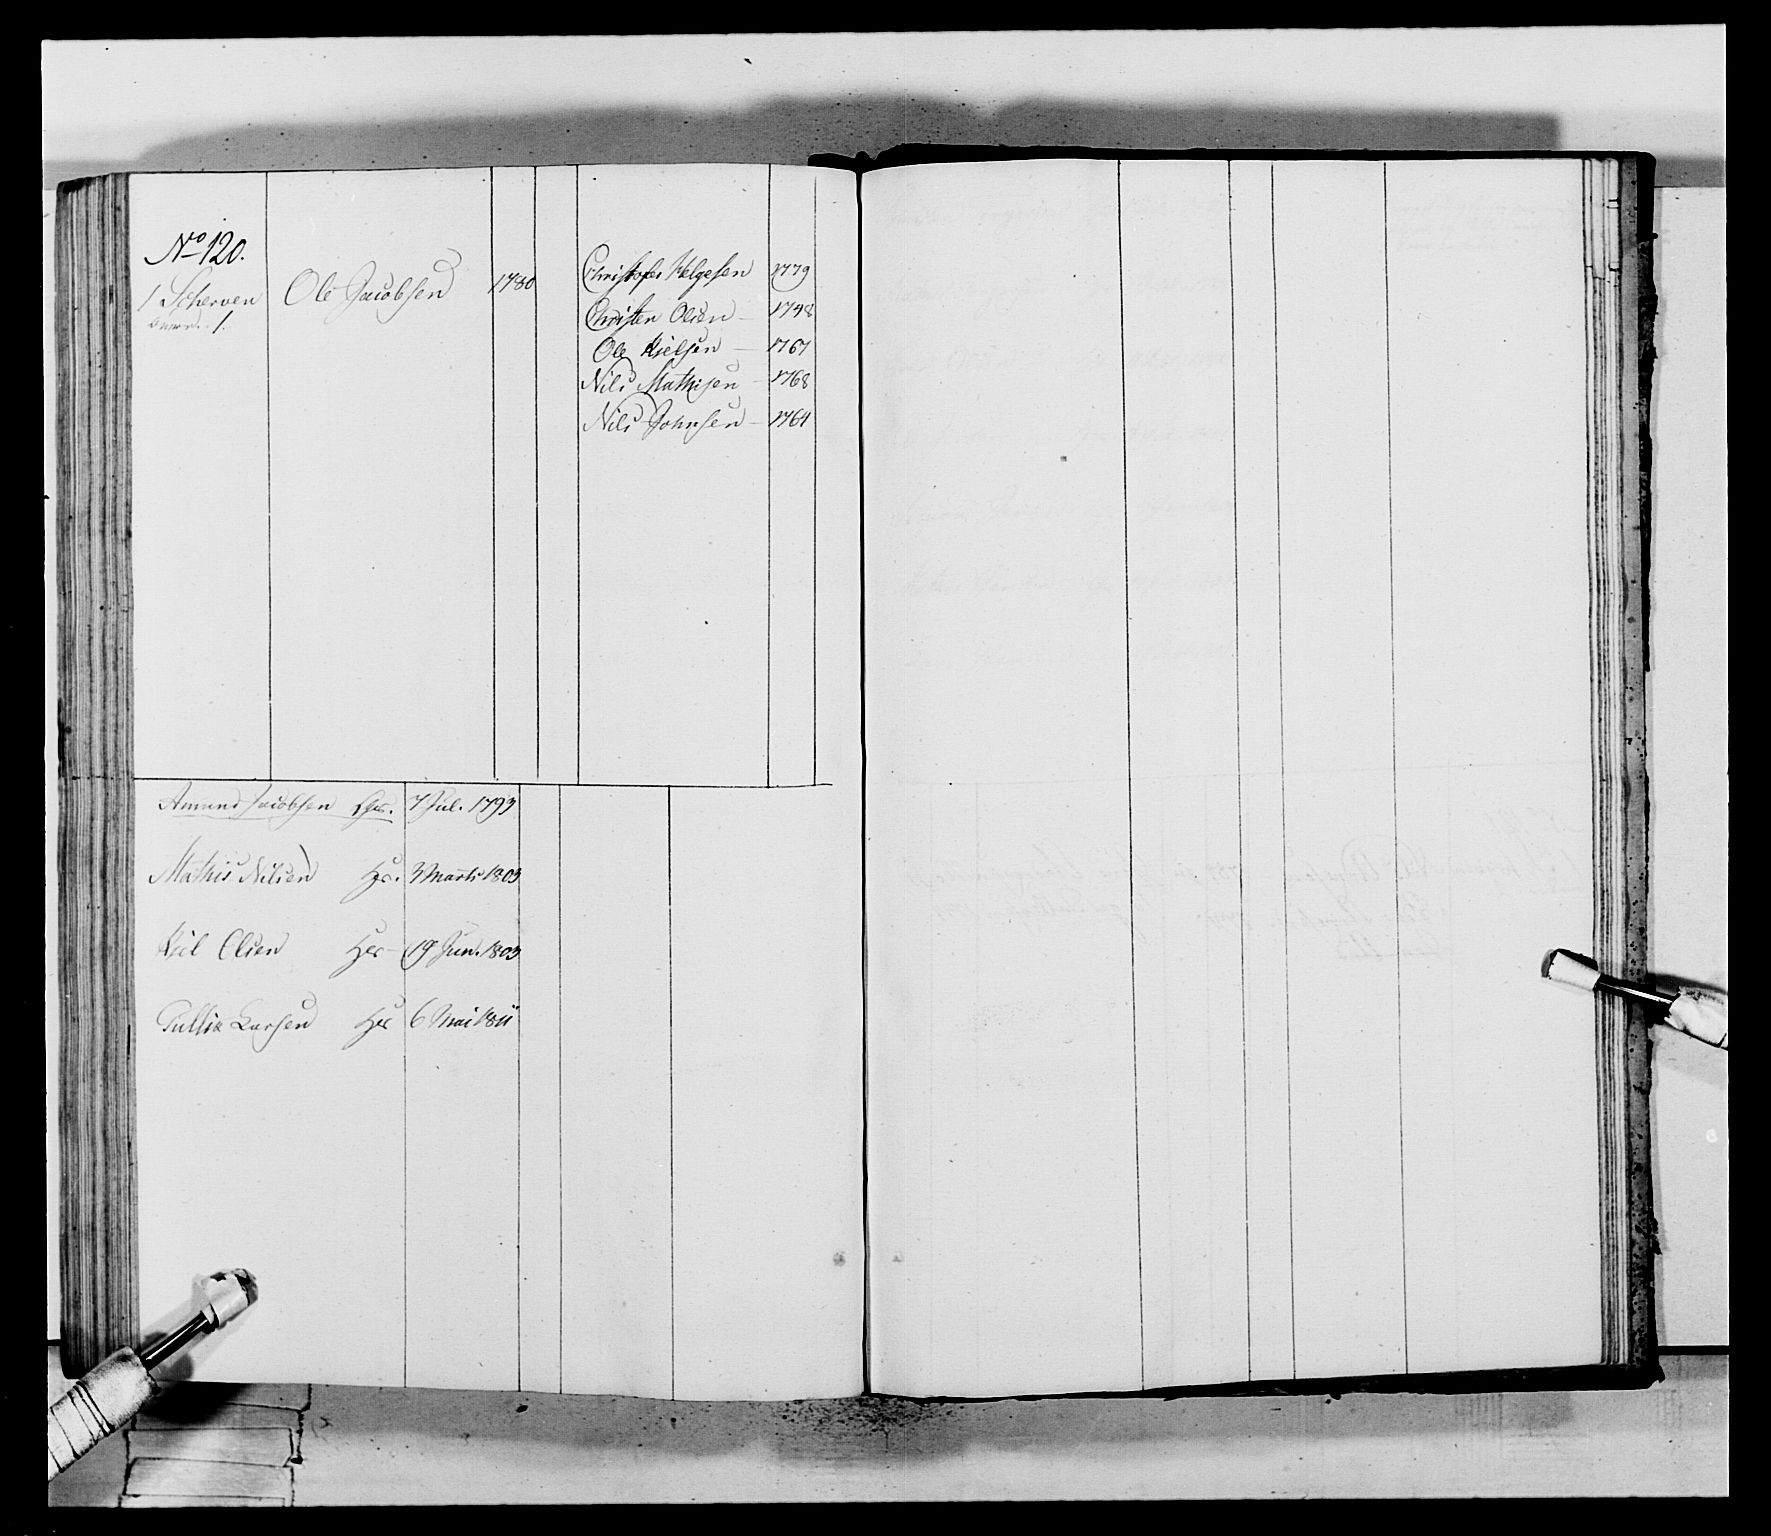 No 120.
1 Scherven Ole Jacobsen 1780
1.
Christofer Helgesen 1779
Christen Olsen - 1748
Ole Kielsen - 1767
Nils Mathisen - 1768
Nils Johnsen - 1764
Amund Jacobsen 7 Jul. 1793
Mathis Nilsen 3 Marts 1803
Kiel Olsen 19 Jun. 1803
Gullik Larsen 6 Mai 1811